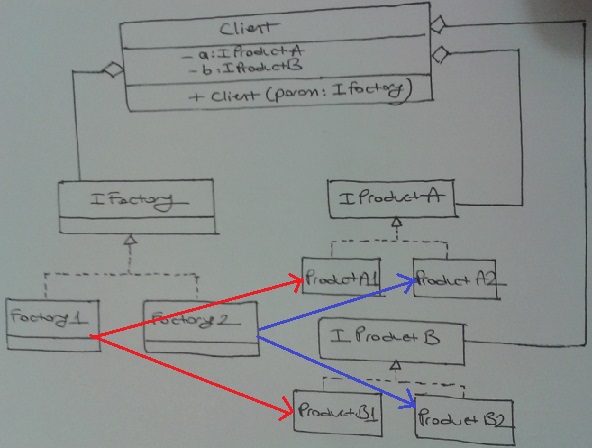 Client
- a: IProductA
- b: IProductB
+ Client (param: Ifactory)
IFactory
IProductA
ProductA1
ProductA2
Factory1
Factory2
IProductB
ProductB1
ProductB2